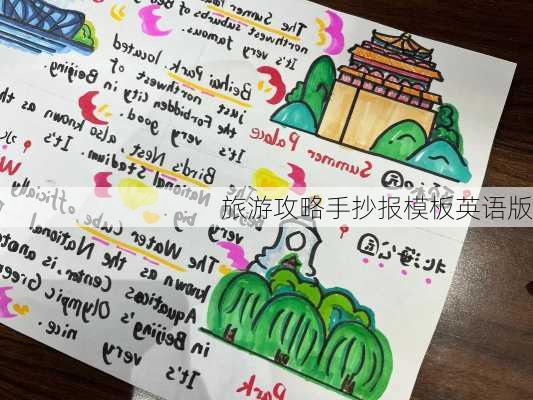 The Summer Palace
northwest suburbs of Be
It's very famous.
Beihai Park, located
just northwest of
the Forbidden City in
Beijing.
It's very good.
Bird's Nest,
also known as th
National Stadium.
It's
very big.
The Water Cube,
officially
known as the National
Aquatics Center, is anot
in Beijing's Olympic Green
It's very nice.
Summer Palace
北海公园
Park
旅游攻略手抄报模板英语版